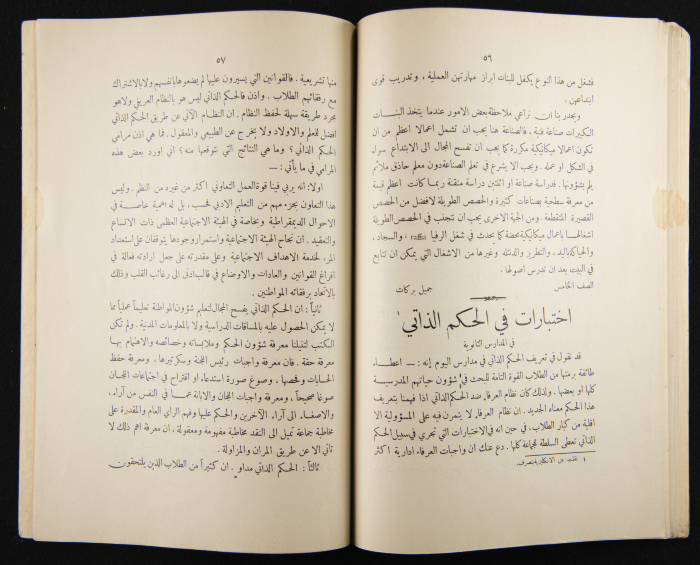 ٥٦
فنشغل من هذا النوع يكفل للبنات ابراز مهارتهن العملية، وتدريب قوى
ابتداعهن.
ويجدر بنا ان نراعي ملاحظة بعض الامور عندما يتخذ البنات
الكبيرات صناعة فنية، فالصناعة هنا يجب ان تشمل اعمالا اعظم من ان
تكون اعمالا ميكانيكية مكررة كما يجب ان تفسح المجال الى الابتداع سواء
في الشكل او عمله. ويجب الا يشرع في تعلم الصناعة دون معلم حاذق ملائم
يلم بشؤونها. فدراسة صناعة او اثنتين دراسة متقنة ربما كانت اعظم قيمة
من معرفة سطحية بصناعات كثيرة والحصص الطويلة لافضل من الحصص
القصيرة المتقطعة. ومن الجهة الاخرى يجب ان تتجنب في الحصص الطويلة
اشغالها باعمال ميكانيكية محضة كما يحدث في شغل الرفيا والسجاد،
والحياكة باليد، والتطريز والدنتله وغيرها من الاشغال التي يمكن ان تتابع
في البيت بعد ان تدرس اصولها.
الصف الخامس جميل بركات
اختبارات في الحكم الذاتي ١
في المدارس الثانوية
قد نقول في تعريف الحكم الذاتي في مدارس اليوم إنه: — اعطاء
طائفة برمتها من الطلاب القوة التامة للبحث في شؤون حياتهم المدرسية
كلها او بعضها. ولذلك كان نظام العرفاء ضد الحكم الذاتي اذا فهمنا بتعريف
هذا الحكم معناه الجديد. ان نظام العرفاء لا يتمرن فيه على المسؤولية الا
اقلية من كبار الطلاب، في حين انه في الاختبارات التي تجري في سبيل الحكم
الذاتي تعطى السلطة للجماعة كلها. دع عنك ان واجبات العرفاء ادارية اكثر
١ نقلت عن الانكليزية بتصرف.
٥٧
منها تشريعية. فالقوانين التي يسيرون عليها لم يضعوها بانفسهم ولا بالاشتراك
مع رفقائهم الطلاب. واذن فالحكم الذاتي ليس هو بالنظام العريفي ولا هو
مجرد طريقة سهلة لحفظ النظام. ان النظام الآتي عن طريق الحكم الذاتي
افضل للمعلم والاولاد ولا يخرج عن الطبيعي والمعقول. فما هي اذن مرامي
الحكم الذاتي؟ وما هي النتائج التي نتوقعها منه؟ اني اورد بعض هذه
المرامي في ما يأتي: —
اولا: انه يربي فينا قوة العمل التعاوني اكثر من غيره من النظم. وليس
هذا التعاون بجزء مهم من التعليم الادبي فحسب، بل له اهمية خاصة في
الاحوال الديمقراطية وبخاصة في الهيئة الاجتماعية العظمى ذات الاتساع
والتعقيد. ان نجاح الهيئة الاجتماعية واستمرار وجودها يتوقفان على استعداد
المرء لخدمة الاهداف الاجتماعية وعلى مقدرته على جعل ارادته فعالة في
افراغ القوانين والعادات والاوضاع في قالب ادنى الى رغائب القلب وذلك
بالاتحاد برفقائه المواطنين.
ثانياً: ان الحكم الذاتي يفسح المجال لتعليم شؤون المواطنة تعليماً عملياً مما
لا يمكن الحصول عليه بالمساقات الدراسية ولا بالمعلومات المدنية. ولم تكن
الكتب لتقبلنا معرفة شؤون الحكم وملابساته وخصائصه والاهتمام بها
معرفة حقة. فان معرفة واجبات رئيس اللجنة وسكرتيرها، ومعرفة حفظ
الحسابات وفحصها، وصوغ صورة استدعاء او اقتراح في اجتماعات اللجان
صوغا صحيحاً، ومعرفة واجبات اللجان والابانة عما في النفس من آراء،
والاصغاء الى آراء الآخرين والحكم عليها وفهم الرأي العام والمقدرة على
مخاطبة جماعة تميل الى النقد مخاطبة مفهومة ومعقولة، ان معرفة اهم ذلك لا
تأتي الا عن طريق المران والمزاولة.
ثالثاً: الحكم الذاتي مداوٍ. ان كثيراً من الطلاب الذين يلتحقون